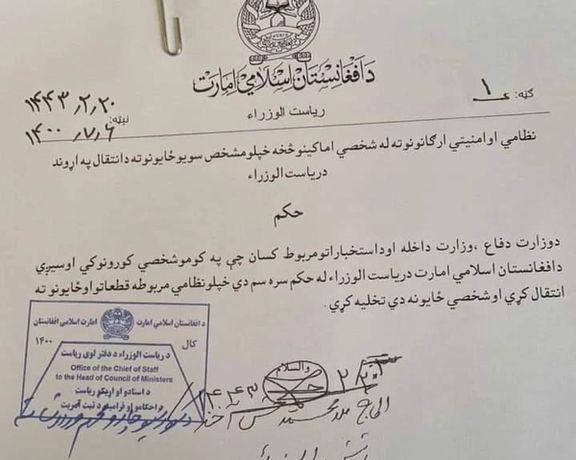 د افغانستان اسلامي امارت
ریاست الوزراء
ګڼه: ۱
نېټه: ۱۴۴۳/۲/۲۰
۱۴۰۰/۷/۶
نظامي او امنیتي ارګانونو ته له شخصي اماکینو څخه خپلو مشخص سویو ځایونو ته د انتقال په اړوند
د ریاست الوزراء
حکم
د وزارت دفاع ، وزارت داخله او د استخباراتو مربوط کسان چي په کومو شخصي کورونو کي اوسیږي
د افغانستان اسلامي امارت د ریاست الوزراء له حکم سره سم دي خپلو نظامي مربوطه قطعاتو او ځایونو ته
انتقال کړي او شخصي ځایونه دي تخلیه کړي .
د افغانستان اسلامي امارت
امارت اسلامی افغانستان
کال
۱۴۰۰
د ریاست الوزراء د دفتر لوی ریاست
Office of the Chief of Staff
to the Head of Council of Ministers
د اسنادو او اړیکو ریاست
د احکامو او فرامینو د ثبت آمریت
والسلام
الحاج ملا محمد حسن آخند